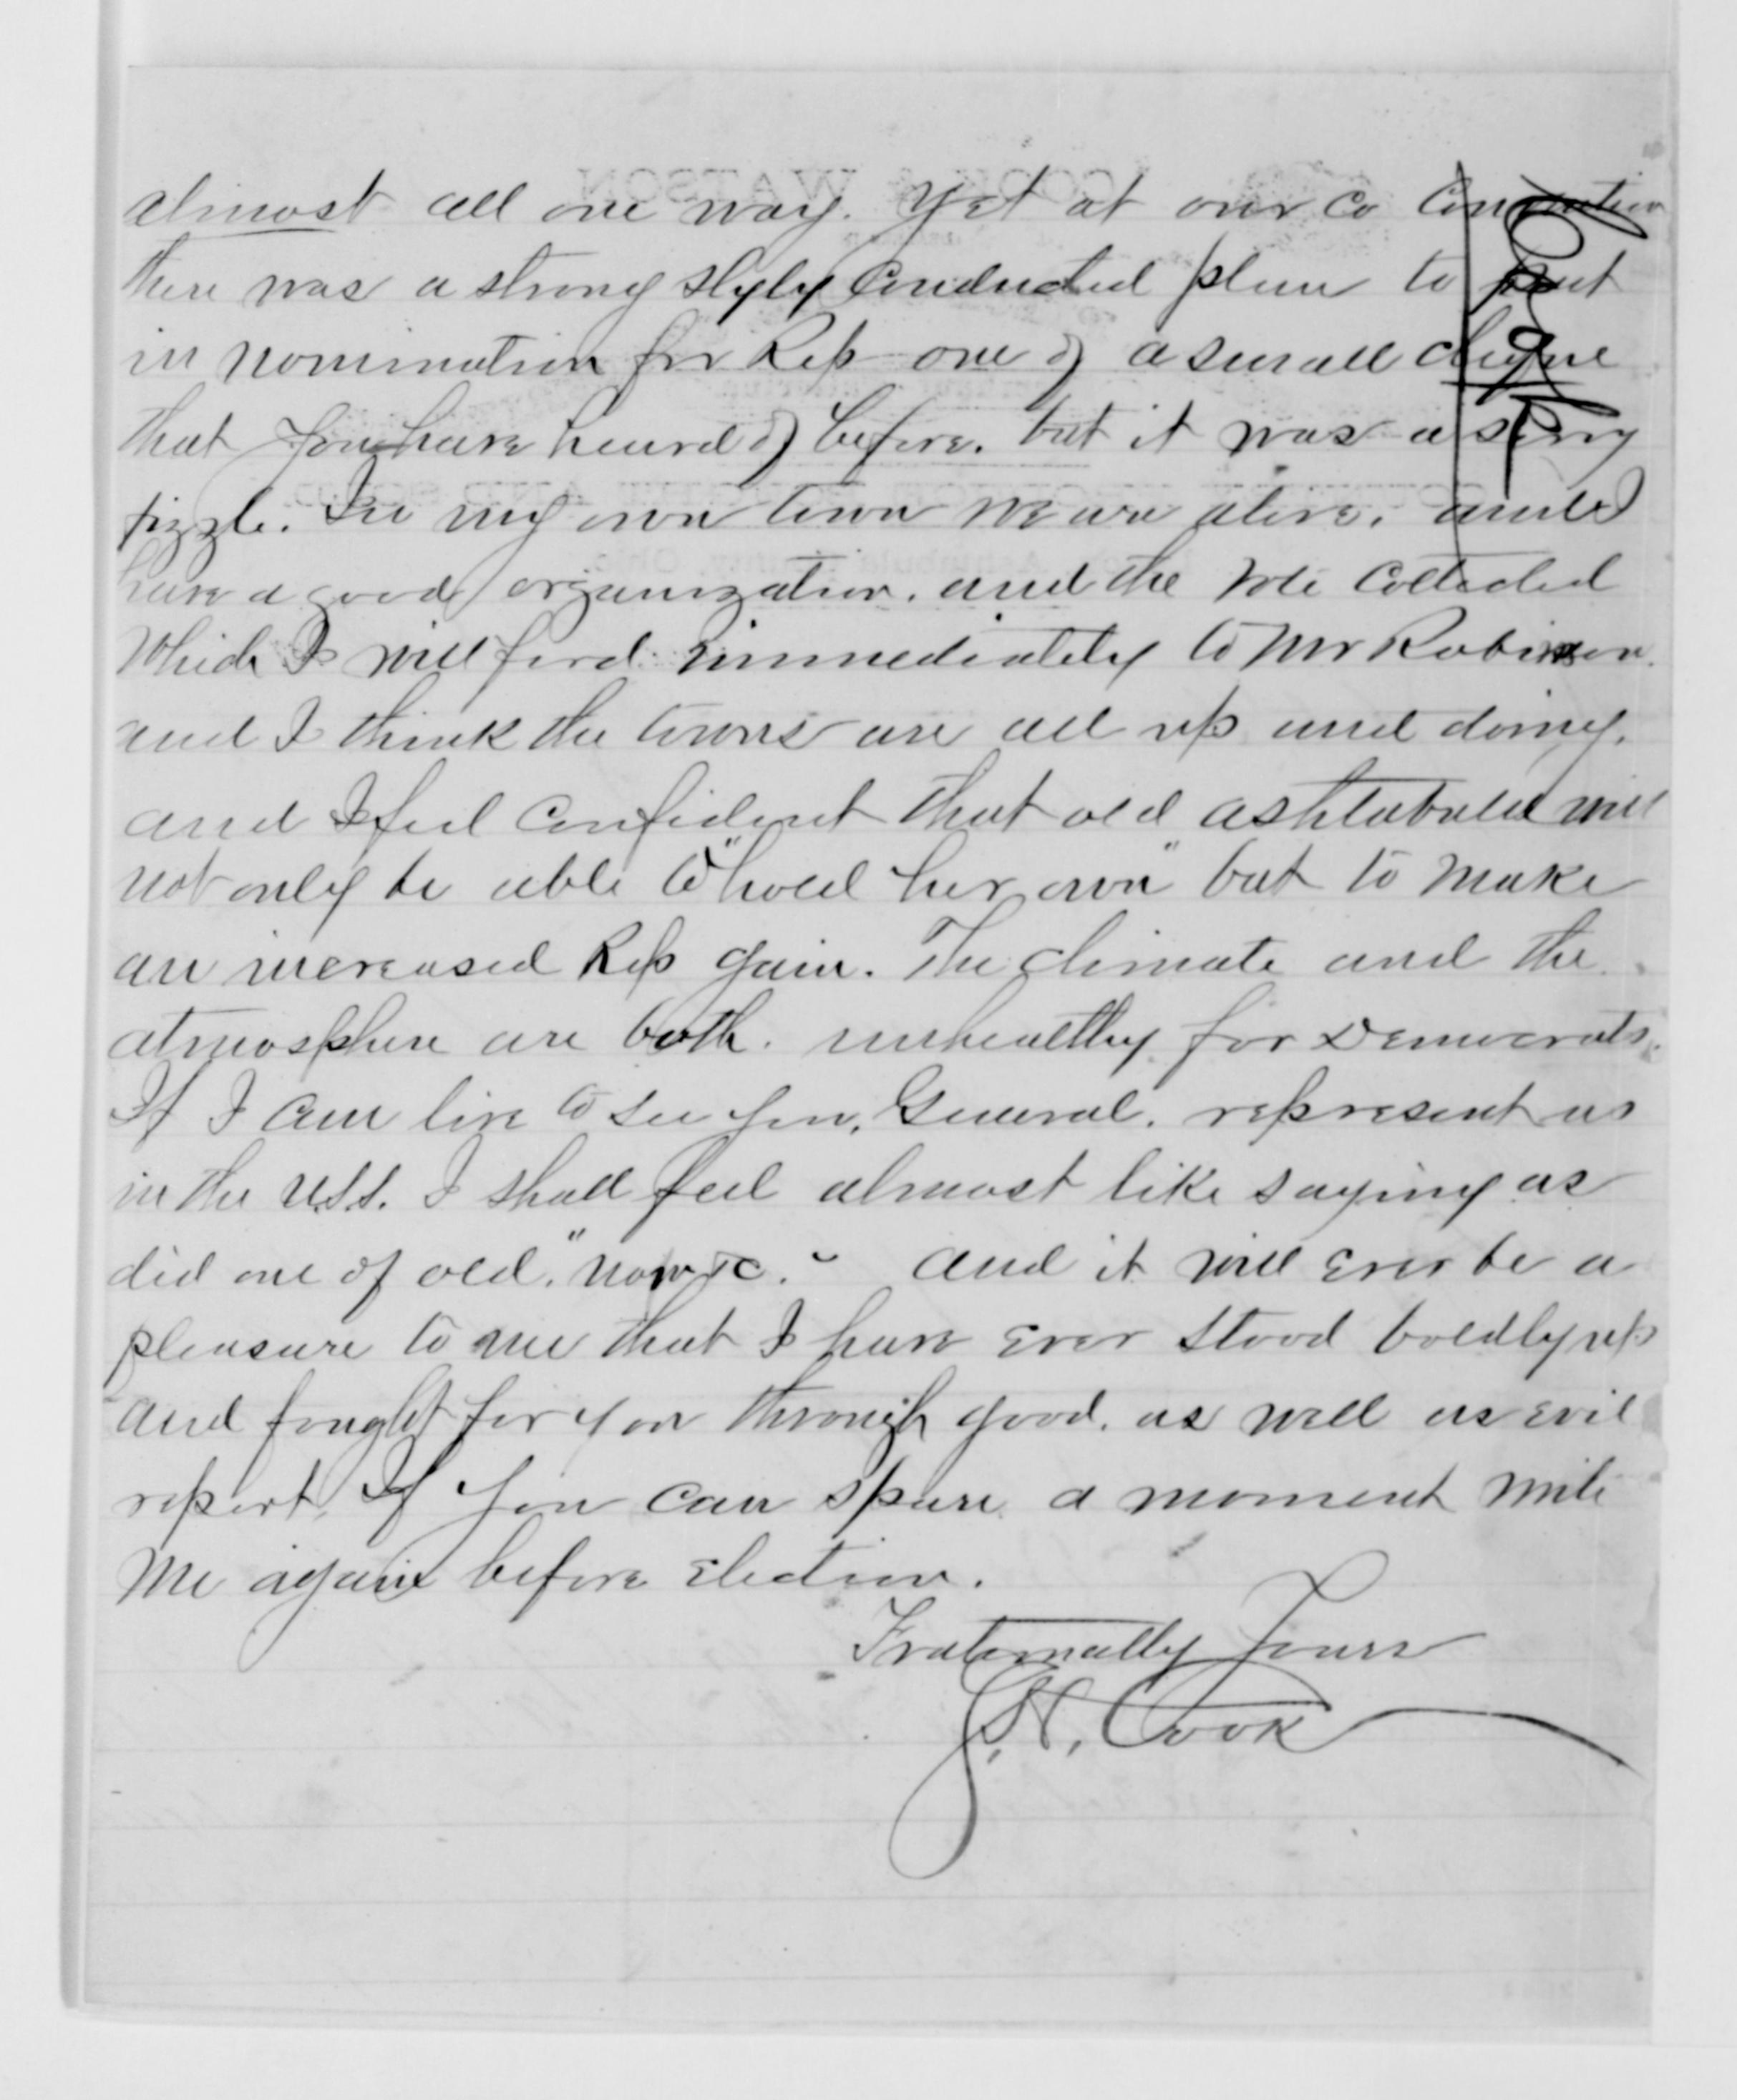 almost all one way. Yet at our Co Convention
there was a strong slyly Conducted plan to put
in nomination for Rep one of a small clique
that you have heard of before. but it was a sorry
fizzle. In my own town we are alive. and
have a good organization. and the vote Collected
Which I will ford immediately to Mr Robinson.
and I think the towns are all up and doing.
and I feel Confident that old ashtabula will
not only be able to "hold her own" but to make
an increased Rep gain. The climate and the
atmosphere are both. unhealthy for Democrats.
If I can live to see you, General. represent us
in the U.S.S. I shall feel almost like saying as
did one of old. "now &c." and it will ever be a
pleasure to me that I have ever stood boldly up
and fought for you through good. as well as evil
report. If you can spare a moment write
me again before Election.
Fraternally Yours
Cook